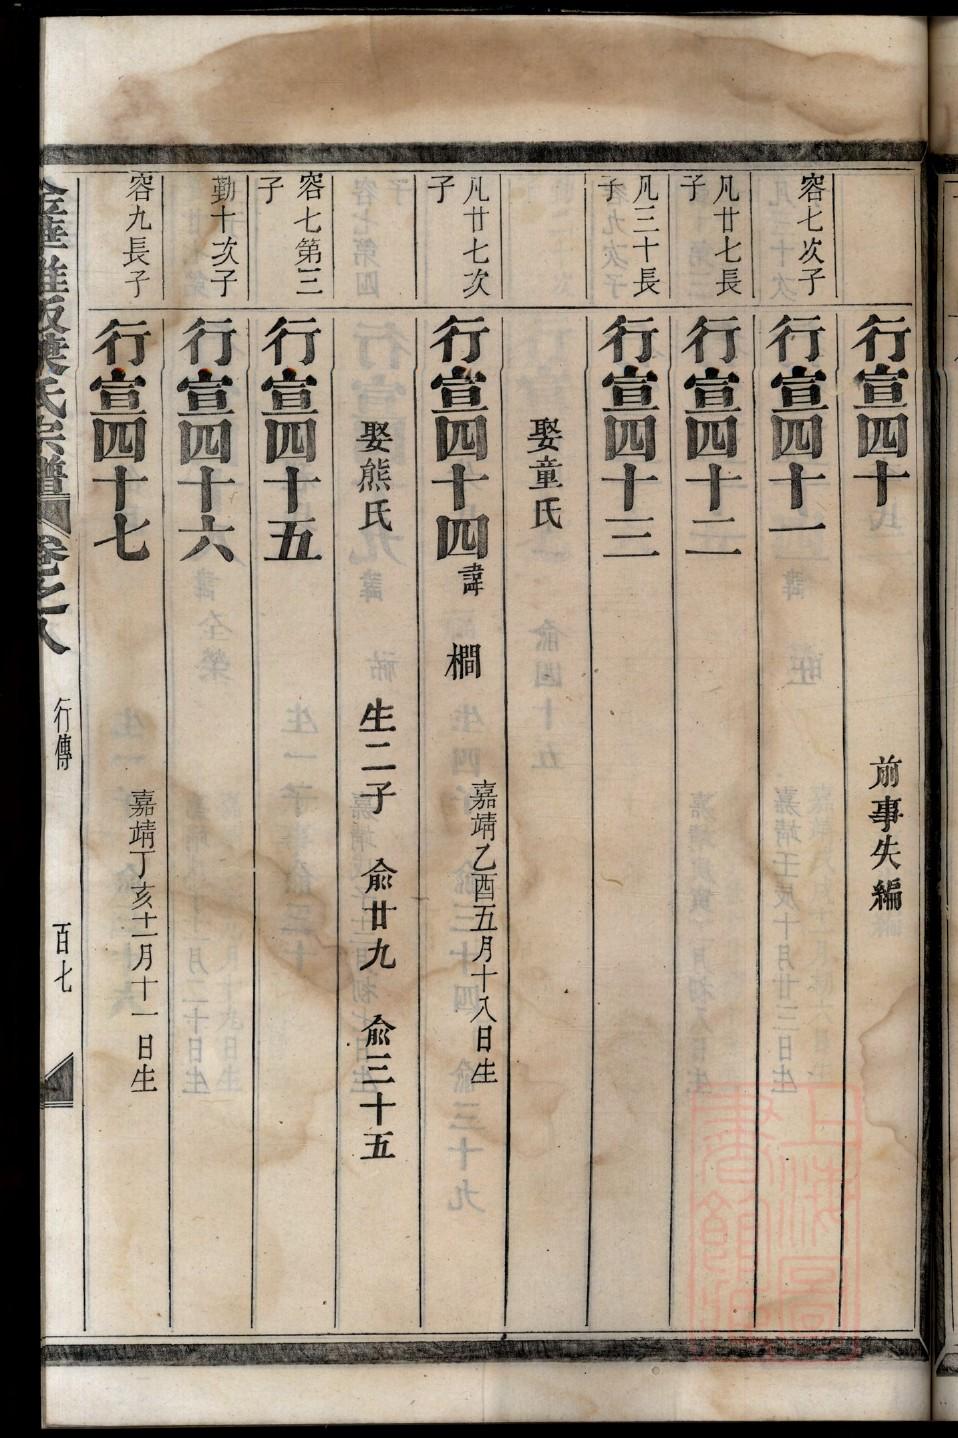 行宣四十
前事失編
容七次子
行宣四十一
凡廿七長子
行宣四十二
凡三十長子
行宣四十三
娶童氏
凡廿七次子
行宣四十四 諱 橺 嘉靖乙酉五月十八日生
娶熊氏 生二子 俞廿九 俞三十五
容七第三子
行宣四十五
勤十次子
行宣四十六
容九長子
行宣四十七 嘉靖丁亥十二月十一日生
氏宗譜 卷之八 行傳 百七